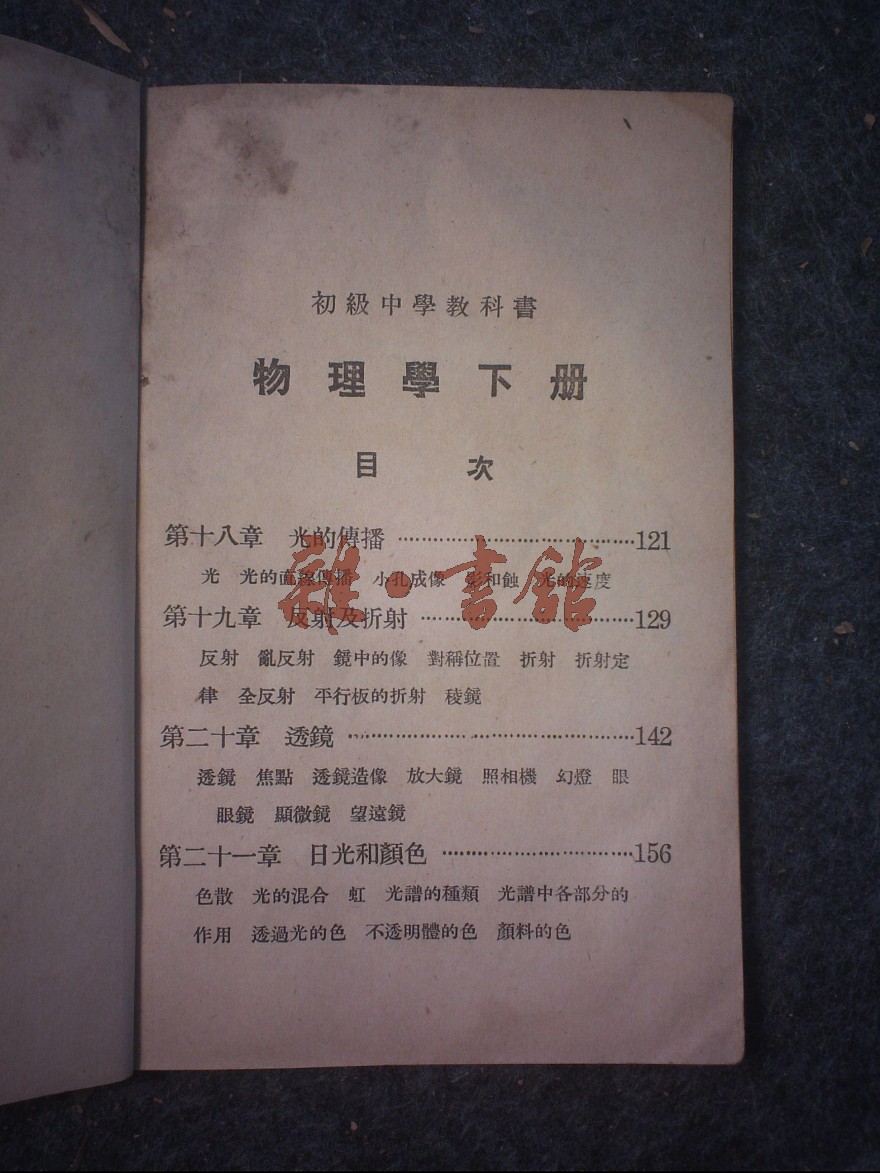 初級中學教科書
物理學下册
目次
第十八章 光的傳播 ……………………………121
光 光的直線傳播 小孔成像 影和蝕 光的速度
第十九章 反射及折射 …………………………129
反射 亂反射 鏡中的像 對稱位置 折射 折射定
律 全反射 平行板的折射 稜鏡
第二十章 透鏡 …………………………………142
透鏡 焦點 透鏡造像 放大鏡 照相機 幻燈 眼
眼鏡 顯微鏡 望遠鏡
第二十一章 日光和顏色 ………………………156
色散 光的混合 虹 光譜的種類 光譜中各部分的
作用 透過光的色 不透明體的色 顏料的色
雜·書館